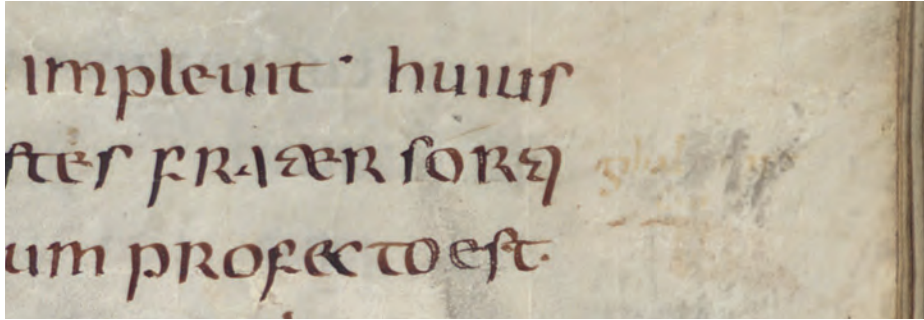 impleuit · huius
stes frater sorq
um profecto est.